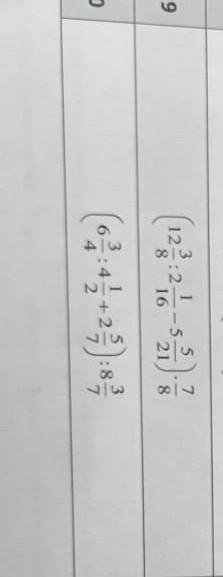 9
(12 3/8 : 2 1/16 − 5 5/21) · 7/8
0
(6 3/4 : 4 1/2 + 2 5/7) : 8 3/7